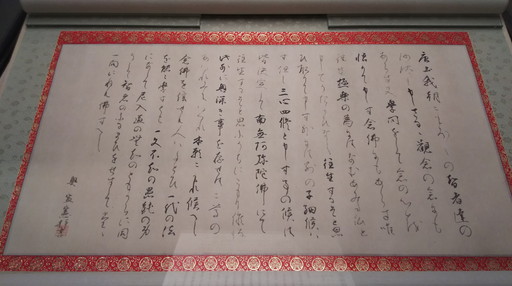 唐土我朝にもろ〳〵の智者達の
沙汰し申さるゝ観念の念にも
あらず又学問をして念の心を
悟りて申す念佛にもあらず唯
往生極楽の為には南無阿弥陀佛と
申してうたがひなく往生するぞと思
ひとりて申す外には別の子細候はず
但三心四修と申す事の候は
皆決定して南無阿弥陀佛にて
往生するぞと思ふうちにこもり候也
此外に奥深き事を存ぜば二尊の
あはれみにはづれ本願にもれ候べし
念佛を信ぜん人はたとひ一代の法
を能々学すとも一文不知の愚鈍の身
になして尼入道の無智のともがらに同
うして智者のふるまひをせずして只
一向に念佛すべし